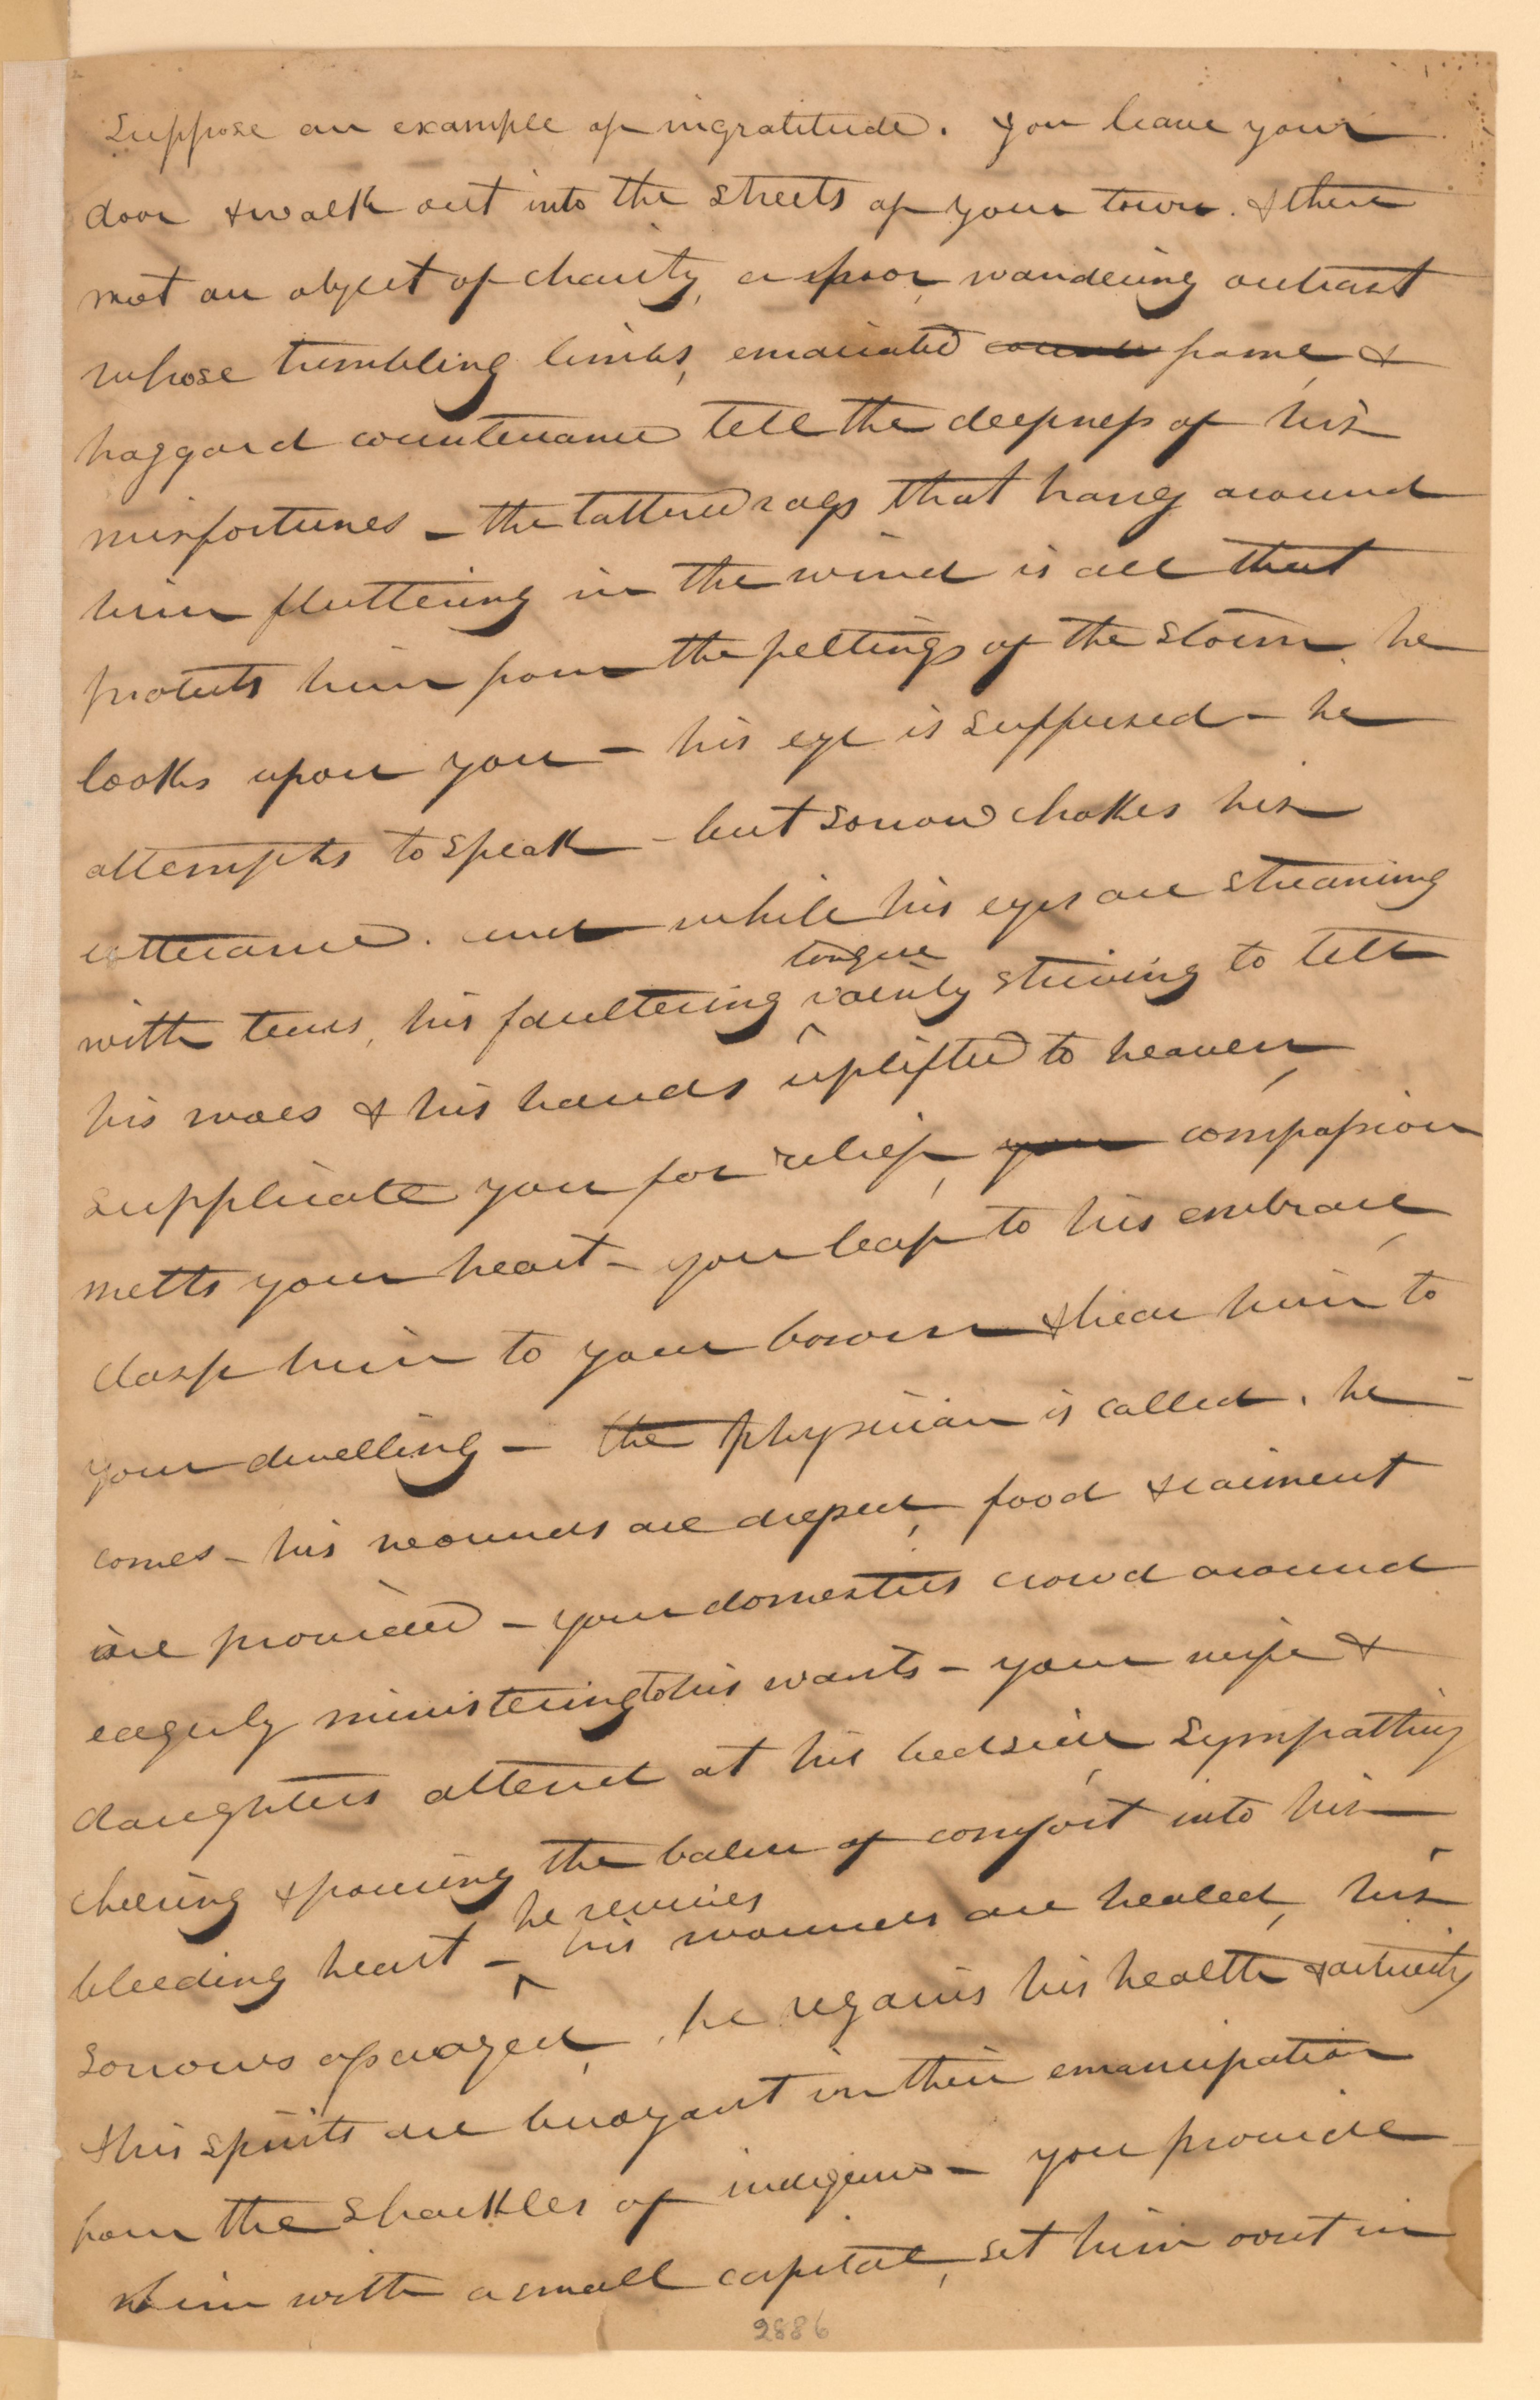 Suppose an example of ingratitude. You leave your
door & walk out into the streets of your town. & there
meet an object of charity, a poor, wandering outcast
whose trembling limbs, emaciated frame, &
haggard countenance tell the deepness of his
misfortunes - the tattered rags that hang around
him fluttering in the wind is all that
protects him from the peltings of the storm, he
looks upon you - his eye is suffused - he
attempts to speak - but sorrow chokes his
utterance. and while his eyes are streaming
with tears, his faultering tongue vainly striving to tell
his woes & his hands uplifted to heaven,
supplicate you for relief, you compassion
melts your heart - you leap to his embrace,
clasp him to your bosom & bear him to
your dwelling - the physician is called. he
comes - his wounds are dressed, food & raiment
are provided - your domestics crowd around
eagerly ministering to his wants - your wife &
daughters attend at his bedside, sympathing
cheering & pouring the balm of comfort into his
bleeding heart - he revives his wounds are healed, his
sorrows assuaged, he regains his health & activity
& his spirits are buoyant in their emancipation
from the shackles of indigence - you provide
him with a small capital, set him out in
2886